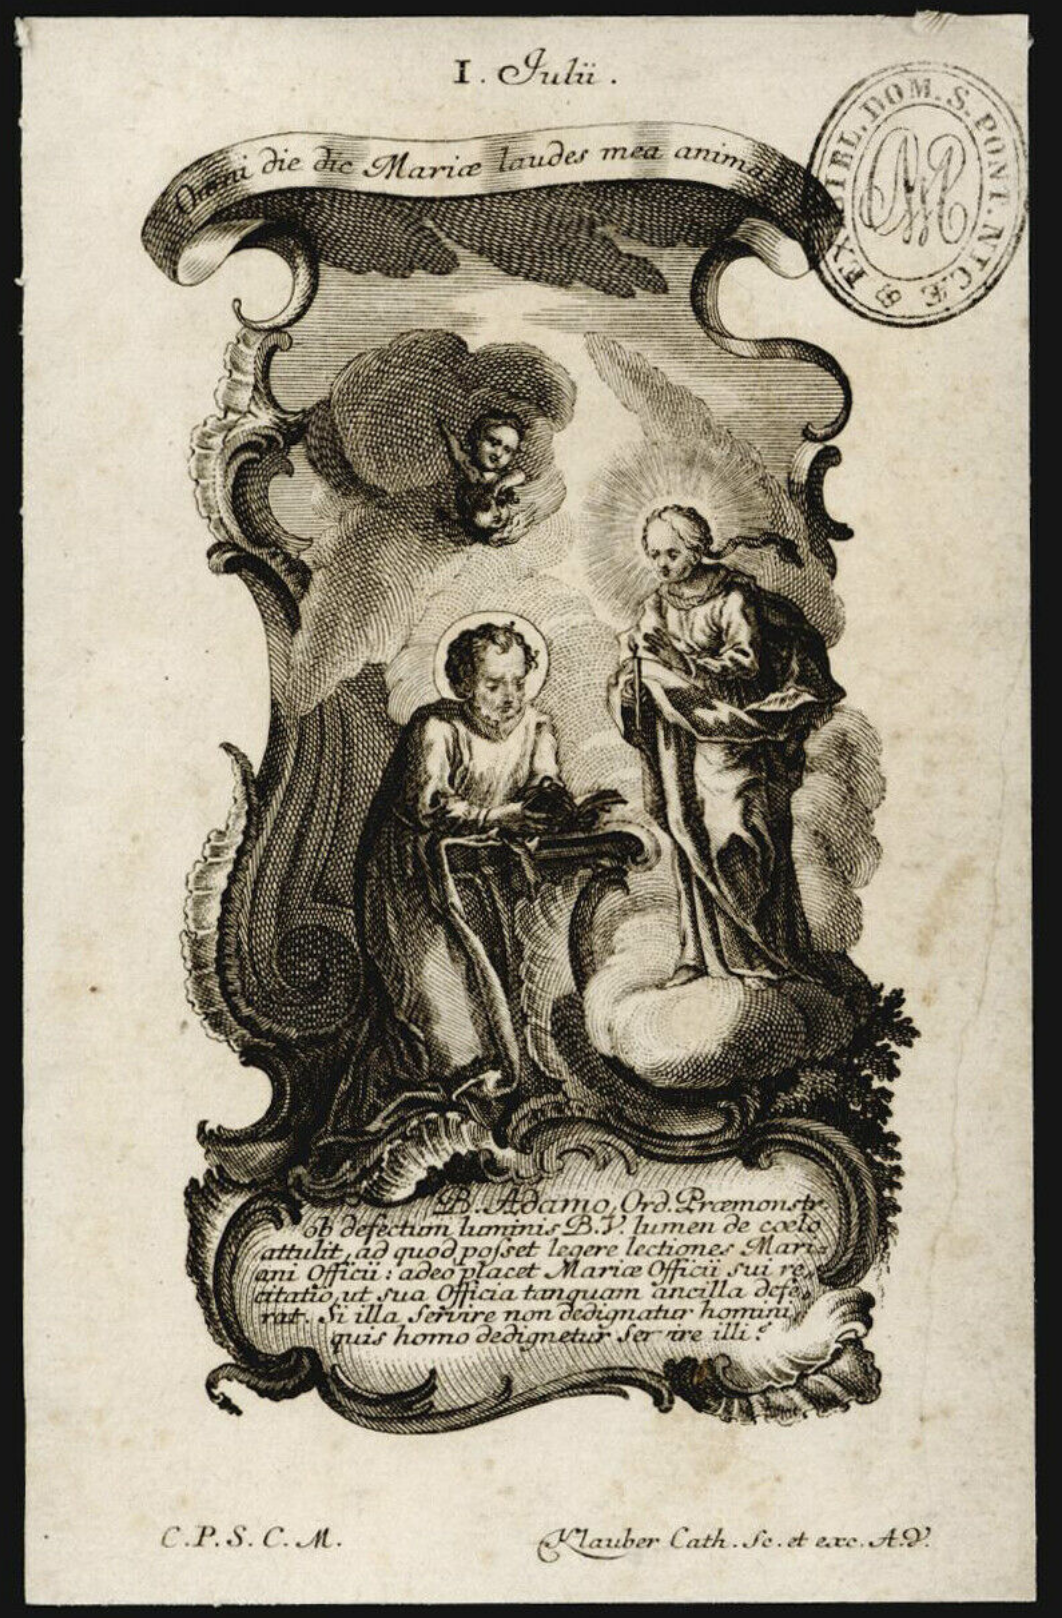 I. Julii.
Omni die dic Mariæ laudes mea anima
EX BIBL. DOM. S. PONT. NICÆ
B. Adamo, Ord. Præmonstr.
ob defectum luminis B.V. lumen de cœlo
attulit, ad quod posset legere lectiones Mari-
ani Officii: adeo placet Mariæ Officii sui re-
citatio, ut sua Officia tanquam ancilla defe-
rat. Si illa servire non dedignatur homini,
quis homo dedignetur servire illi?
C.P.S.C.M.
Klauber Cath. Sc. et exc. A.V.